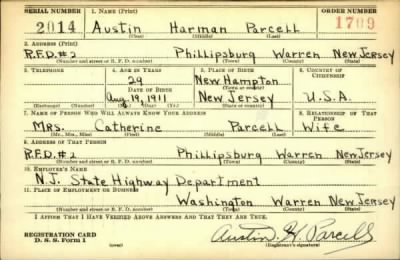 SERIAL NUMBER 1. NAME (Print) ORDER NUMBER
2014 Austin Harman Parcell 1709
(First) (Middle) (Last)
2. ADDRESS (Print)
R.F.D.#2 Phillipsburg Warren New Jersey
(Number and street or R. F. D. number) (Town) (County) (State)
3. TELEPHONE 4. AGE IN YEARS 5. PLACE OF BIRTH 6. COUNTRY OF CITIZENSHIP
29 New Hampton
DATE OF BIRTH (Town or county)
Aug. 19, 1911 New Jersey U.S.A.
(Exchange) (Number) (Mo.) (Day) (Yr.) (State or country)
7. NAME OF PERSON WHO WILL ALWAYS KNOW YOUR ADDRESS 8. RELATIONSHIP OF THAT PERSON
Mrs. Catherine Parcell Wife
(Mr., Mrs., Miss) (First) (Middle) (Last)
9. ADDRESS OF THAT PERSON
R.F.D.#2 Phillipsburg Warren New Jersey
(Number and street or R. F. D. number) (Town) (County) (State)
10. EMPLOYER'S NAME
N.J. State Highway Department
11. PLACE OF EMPLOYMENT OR BUSINESS
Washington Warren New Jersey
(Number and street or R. F. D. number) (Town) (County) (State)
I AFFIRM THAT I HAVE VERIFIED ABOVE ANSWERS AND THAT THEY ARE TRUE.
REGISTRATION CARD
D. S. S. Form 1 (over) Austin H. Parcell
(Registrant's signature)